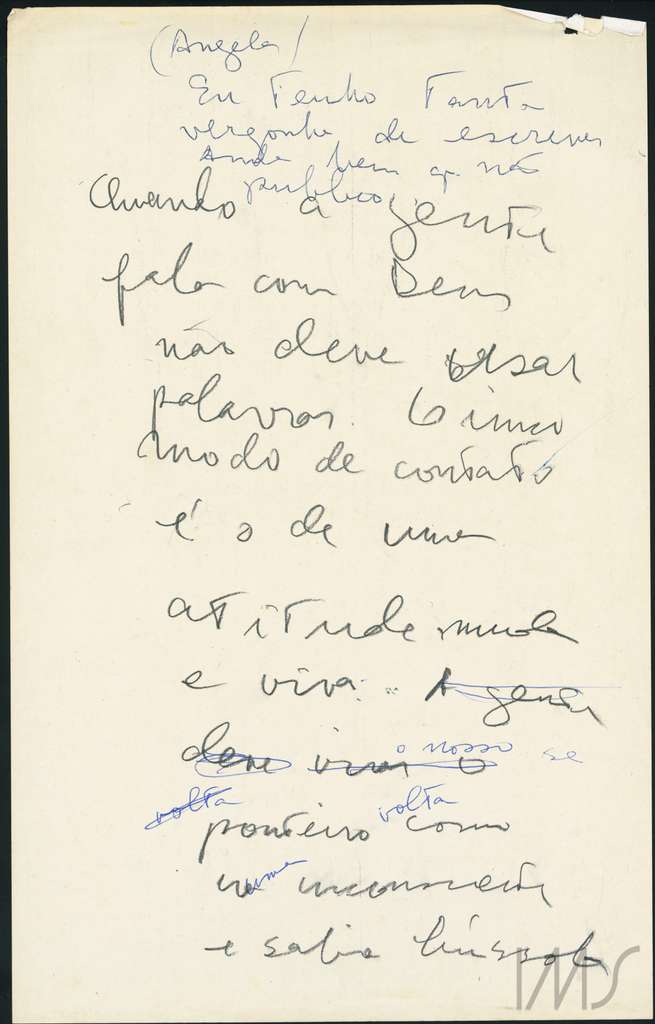 (Angela)
Eu Tenho Tanta
vergonha de escrever
Ainda bem q. não
publico.
Quando a gente
fala com Deus
não deve usar
palavras. O único
modo de contato
é o de uma
atitude muda
e viva. A gente
deve virar o o nosso se
volta volta
ponteiro como
uma inconsciente
e sabia bússola
IMS